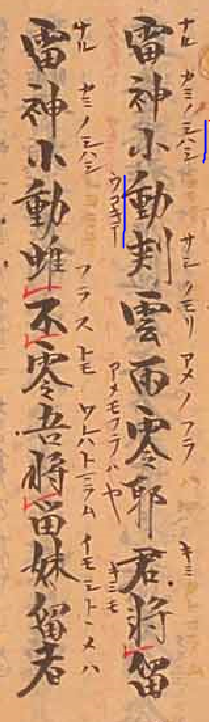 ナル カミノシハシ サシクモリ アメノフラハ キミ
雷神小動刾雲雨零耶君将留
アメモフラハヤ キミモ
ナル カミノシハシ フラストモ ワレハトマラム イモシトヽメハ
雷神小動雖不零吾将留妹留者